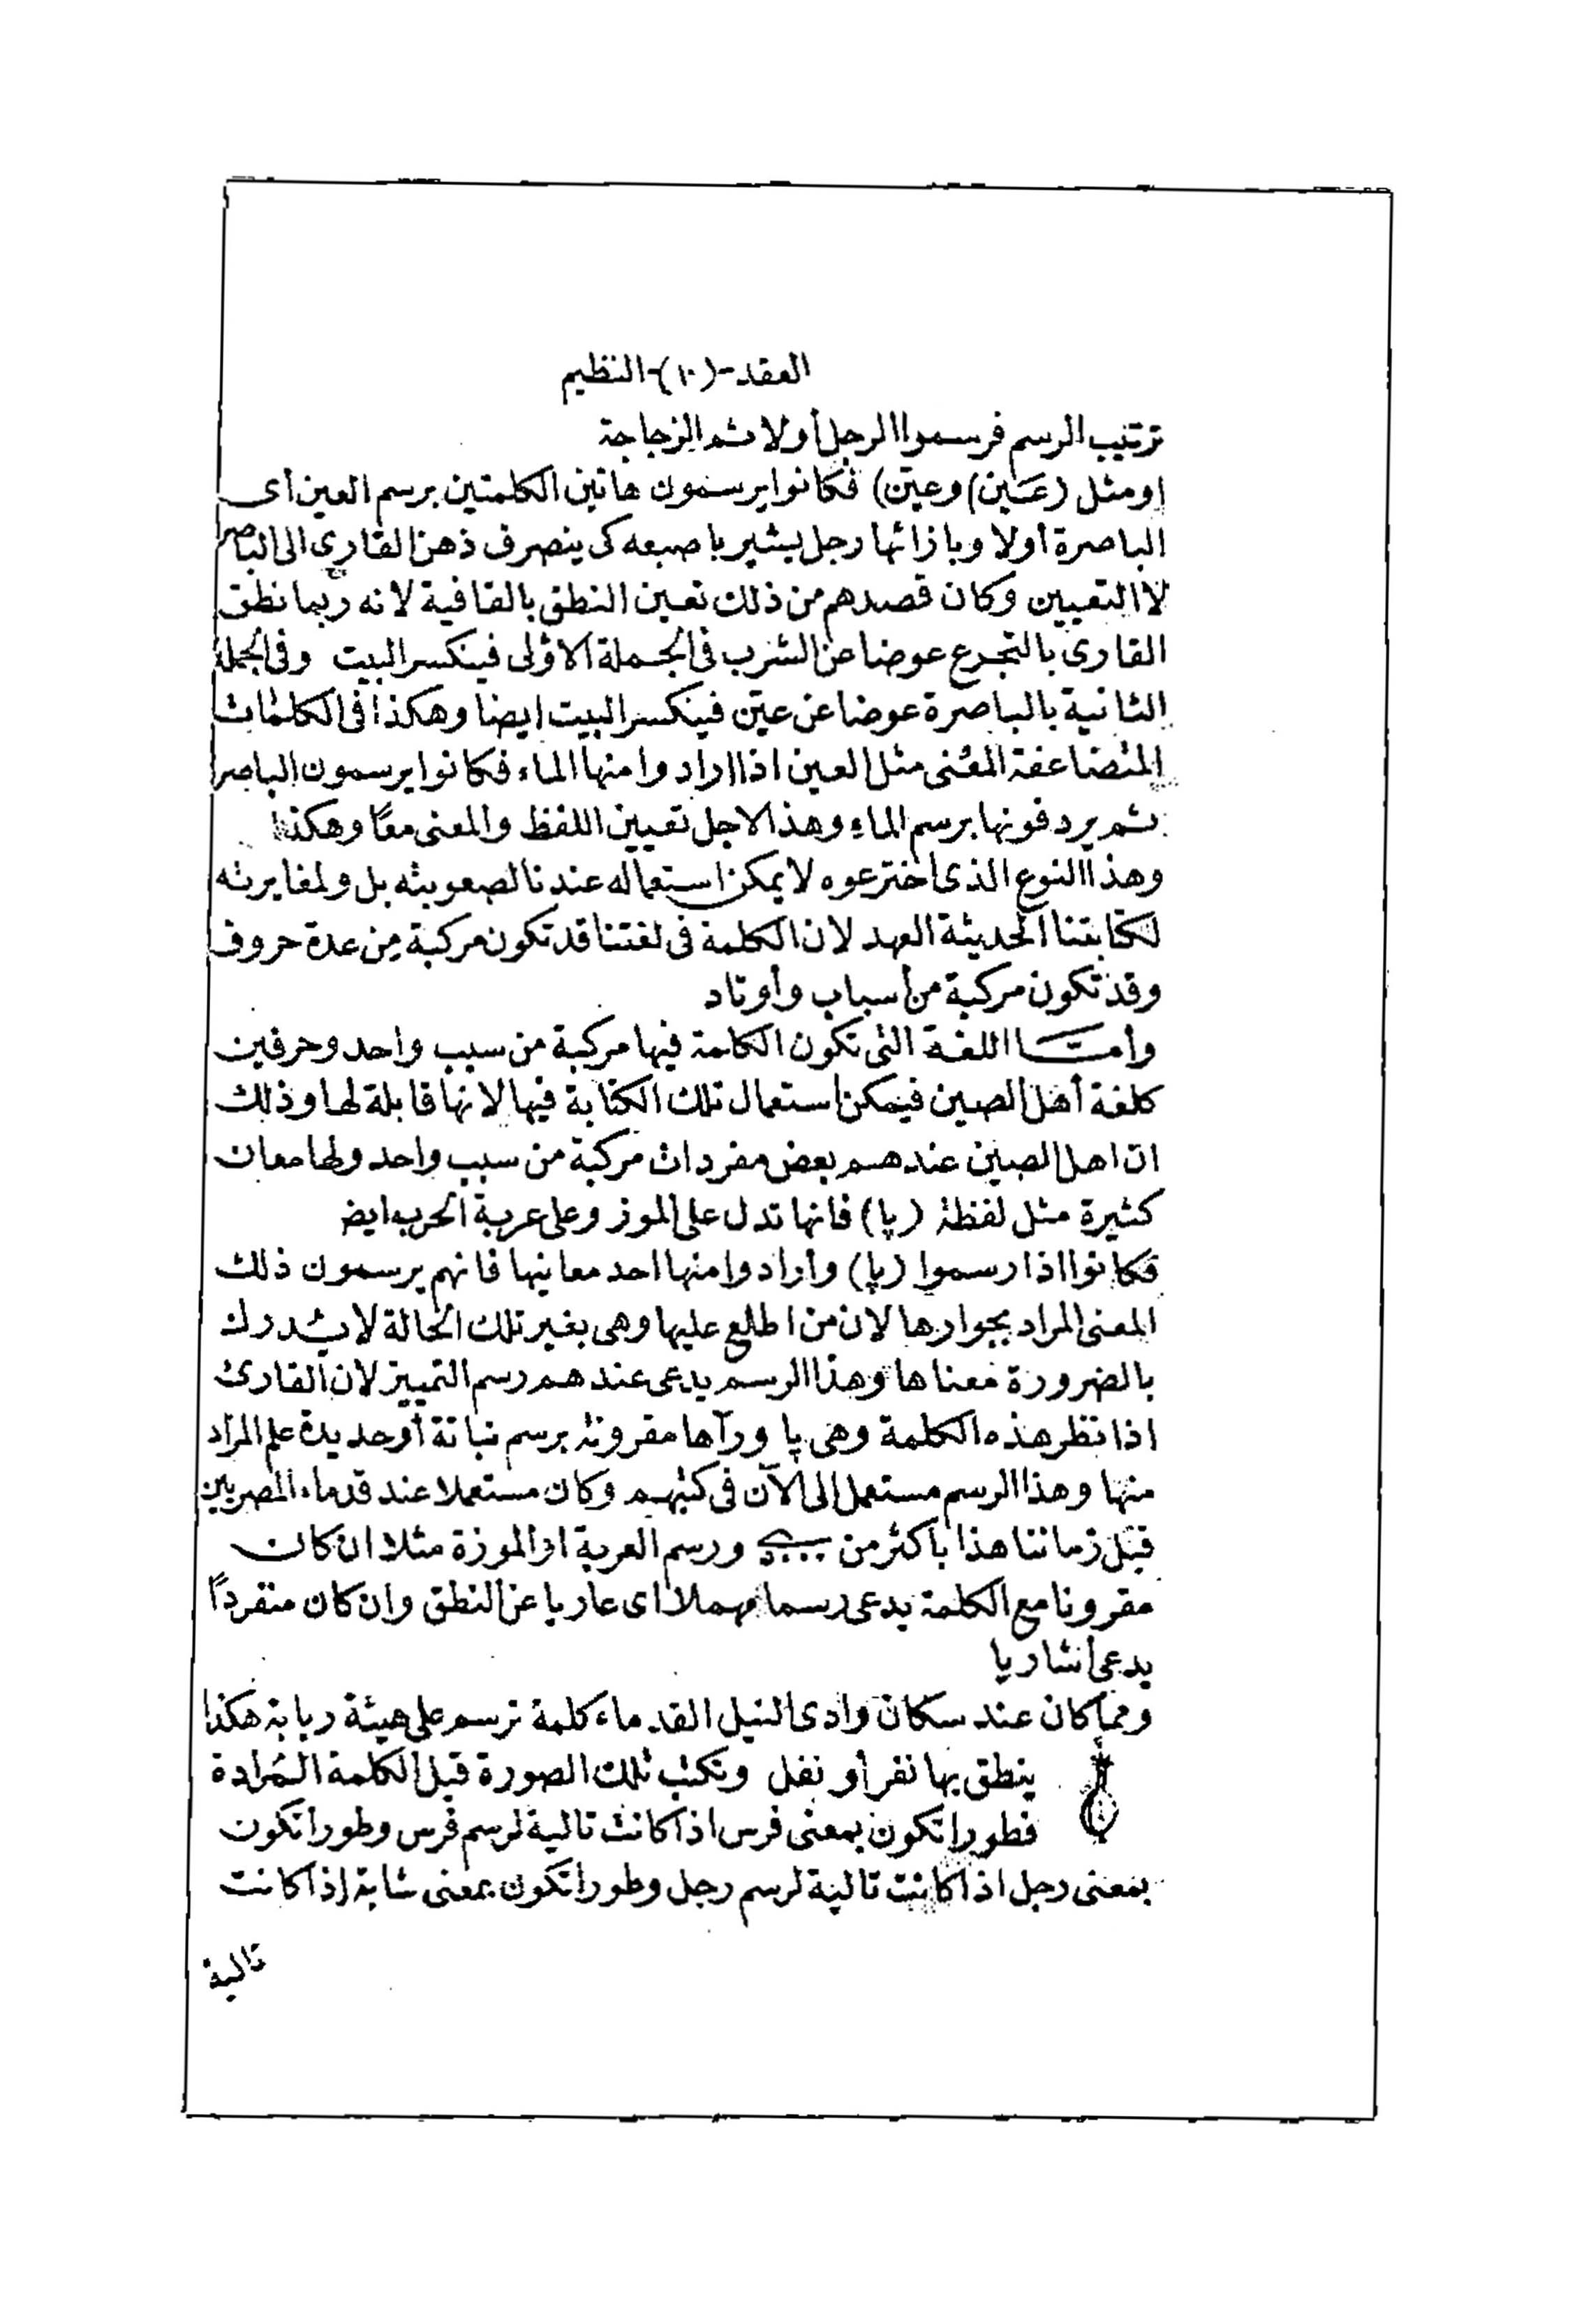 العقد-(١٠)-النظيم
ترتيب الرسم فرسموا الرجل أولا ثم الزجاجة
اومثل (عَين) وعين) فكانوا يرسمون هاتين الكلمتين برسم العين أى
الباصرة أولا وبازائها رجل يشير باصبعه كى ينصرف ذهن القارى الى الباصرا
لا التعيين وكان قصدهم من ذلك تعين النطق بالقافية لانه ربما نطق
القارى بالتجرع عوضا عن الشرب فى الجملة الاولى فينكسر البيت وفى الجملة
الثانية بالباصرة عوضا عن عين فينكسر البيت ايضا وهكذا فى الكلمات
المتضاعفة المعنى مثل العين اذا ارادوا منها الماء فكانوا يرسمون الباصرا
ثم يردفونها برسم الماء وهذا لاجل تعيين اللفظ والمعنى معًا وهكذا
وهذا النوع الذى اخترعوه لا يمكن استعماله عندنا لصعوبته بل ولمغايرته
لكتابتنا الحديثة العهد لان الكلمة فى لغتنا قد تكون مركبة من عدة حروف
وقد تكون مركبة من أسباب وأوتاد
وأمــا اللغة التى تكون الكلمة فيها مركبة من سبب واحد وحرفين
كلغة أهل الصين فيمكن استعمال تلك الكتابة فيها لانها قابلة لها وذلك
ان اهل الصين عندهم بعض مفردات مركبة من سبب واحد ولها معان
كثيرة مثل لفظة (پا) فانها تدل على الموز وعلى عربة الحرب ايض
فكانوا اذا رسموا (پا) وأرادوا منها احد معانيها فانهم يرسمون ذلك
المعنى المراد بجوارها لان من اطلع عليها وهى بغير تلك الحالة لا يدرك
بالضرورة معناها وهذا الرسم يدعى عندهم رسم التمييز لان القارئ
اذا نظر هذه الكلمة وهى پا ورآها مقرونة برسم نباتة أو حديدة علم المراد
منها وهذا الرسم مستعمل الى الآن فى كتبهم وكان مستعملا عند قدماء المصريين
قبل زماننا هذا باكثر من ورسم العربة او الموزة مثلا ان كان
مقرونا مع الكلمة يدعى رسما مهملا اى عاريا عن النطق وان كان منفردًا
يدعى أشاريا
ومما كان عند سكان وادى النيل القدماء كلمة ترسم على هيئة ربابة هكذا
ينطق بها نفر أو نفل وتكتب تلك الصورة قبل الكلمة المرادة
فطورا تكون بمعنى فرس اذا كانت تالية لرسم فرس وطورا تكون
بمعنى رجل اذا كانت تالية لرسم رجل وطورا تكون بمعنى شابة اذا كانت
تالية